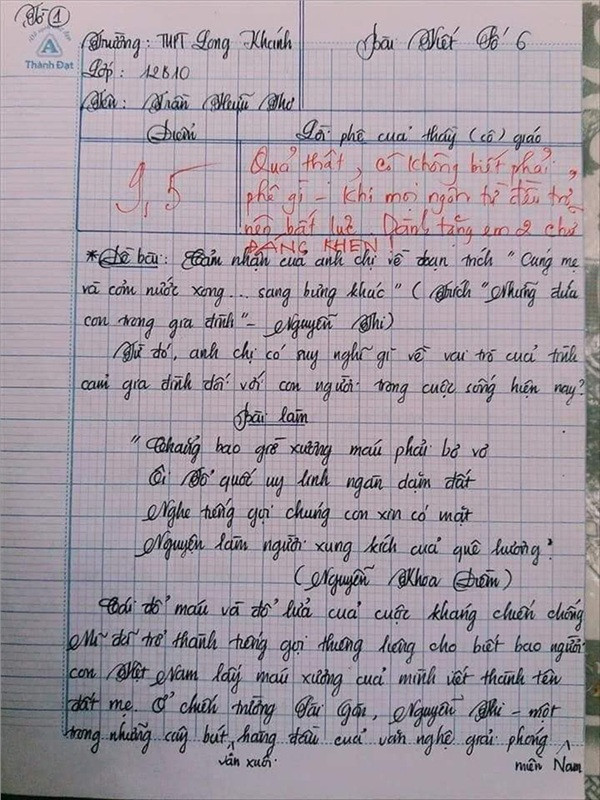 Tờ 1
Thành Đạt
Trường: THPT Long Khánh
Bài Viết Số 6
Lớp: 12B10
Tên: Trần Huỳnh Thơ
Điểm
Lời phê của thầy (cô) giáo
9,5
Quả thật, cô không biết phải
phê gì - khi mọi ngôn từ đều trở
nên bất lực. Dành tặng em 2 chữ
ĐÁNG KHEN!
* Đề bài: Cảm nhận của anh chị về đoạn trích "Cúng mẹ
và cơm nước xong... sang bưng khác" (Trích "Những đứa
con trong gia đình" - Nguyễn Thi)
Từ đó, anh chị có suy nghĩ gì về vai trò của tình
cảm gia đình đối với con người trong cuộc sống hiện nay?
Bài làm
"Chẳng bao giờ xương máu phải bơ vơ
Ôi Tổ quốc uy linh ngàn dặm đất
Nghe tiếng gọi chúng con xin có mặt
Nguyện làm người xung kích của quê hương"
(Nguyễn Khoa Điềm)
Cái đổ máu và đổ lửa của cuộc kháng chiến chống
Mĩ đã trở thành tiếng gọi thương lượng cho biết bao người
con Việt Nam lấy máu xương của mình viết thành tên
đất mẹ. Ở chiến trường Sài Gòn, Nguyễn Thi - một
trong những cây bút văn xuôi hàng đầu của văn nghệ giải phóng miền Nam